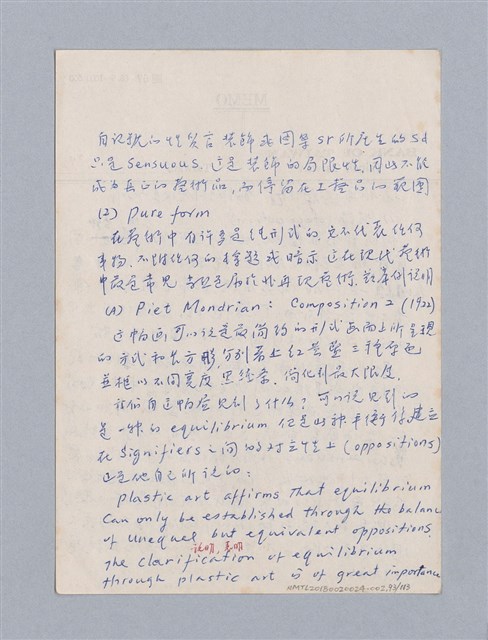 MEMO
自記號的性質言裝飾或圖案 sr 所產生的 sd
只是 sensuous. 这是裝飾的局限性, 因此不能
成为真正的藝術品, 而停留在工藝品的範圍
(2) Pure form
在藝術中有許多是純形式的, 它不代表任何
事物, 不附任何的 或暗示 这在現代藝術
中最爲常見 再現藝術. 舉例說明
(A) Piet Mondrian: Composition 2 (1922)
这幅画, 可以说是最簡約的形式 画面上所呈現
的 方式和長方形, 分別着上紅黃藍三種原色
並框以不同寬度黑線條. 簡化到最大限度.
我們自这幅畫見到了什么? 可以说見到的
是一種的 equilibrium 但是此種平衡係建立
在 Signifiers 之间的对立性上 (oppositions)
他自己所说的:
plastic art affirms that equilibrium
can only be established through the balance
of unequal but equivalent oppositions.
说明, 表明
The clarification of equilibrium
through plastic art is of great importance
HMTL20130020024-002,93/113